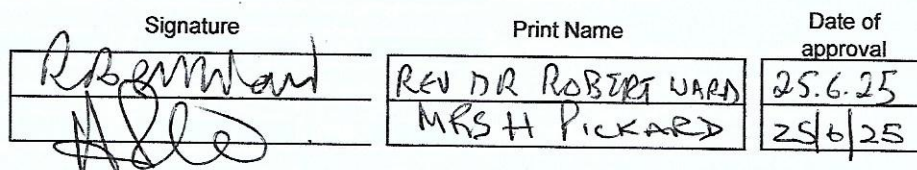 Signature Print Name Date of
approval
REV DR ROBERT WARD 25.6.25
MRS H PICKARD 25/6/25